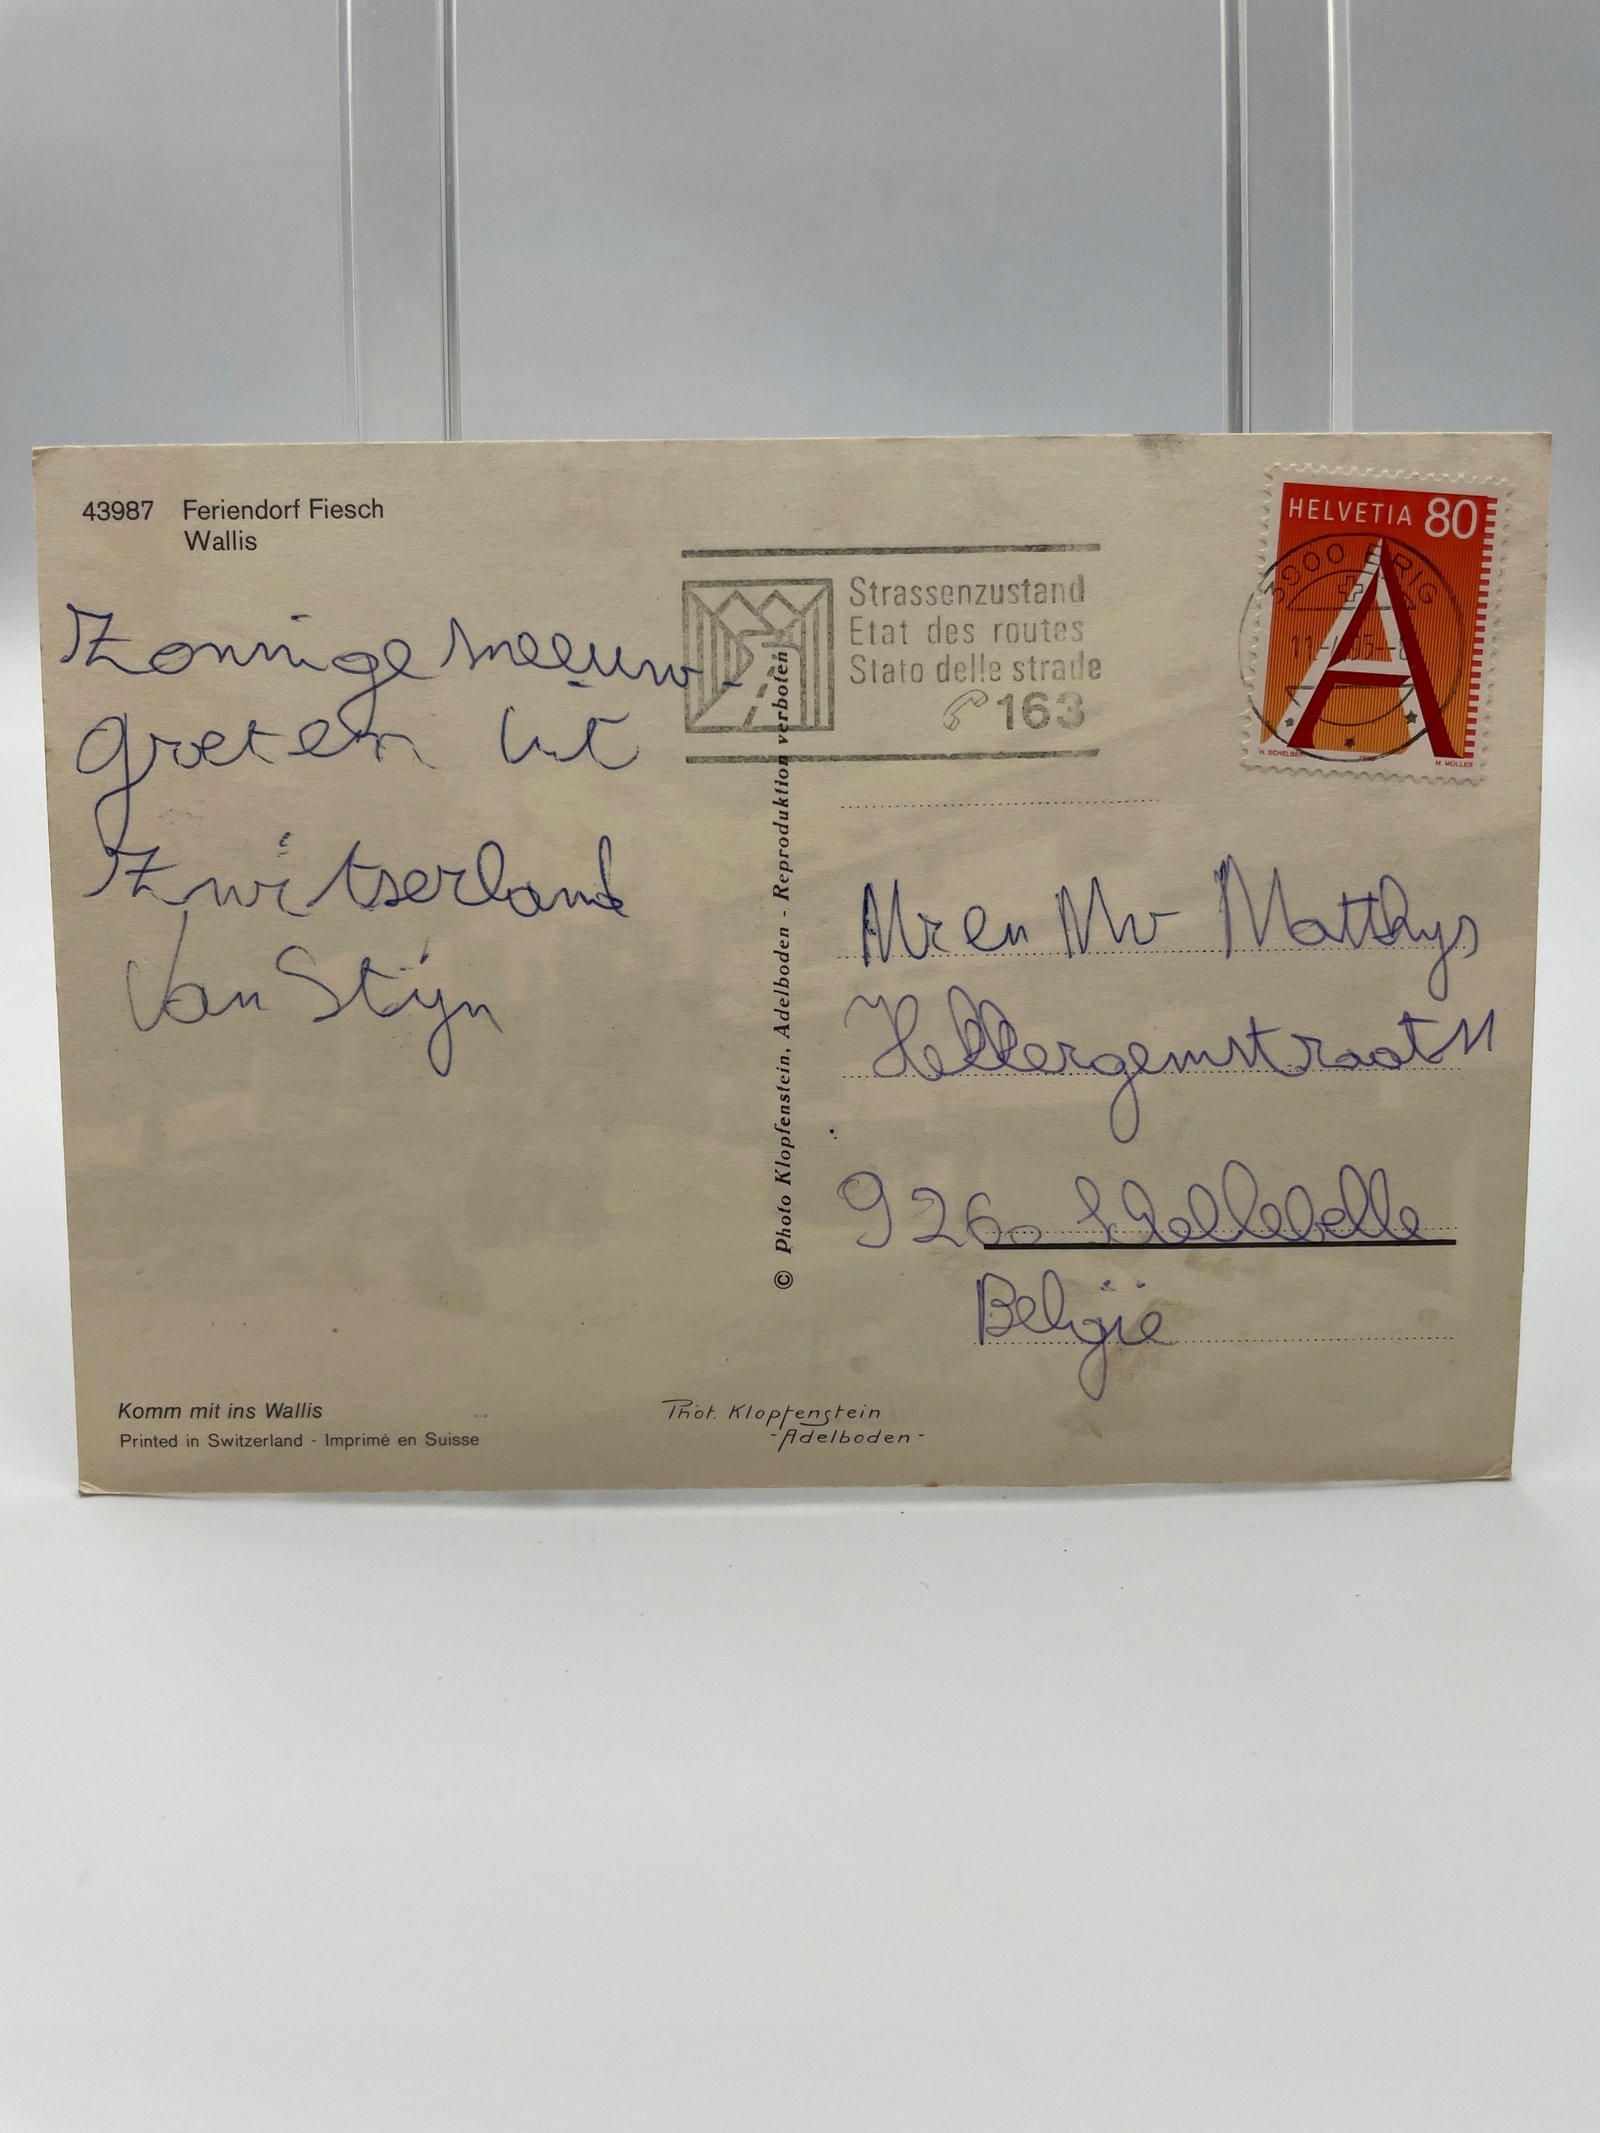 43987 Feriendorf Fiesch
Wallis
Zonnige sneeuw-
groeten uit
Zwitserland
Van Stijn
Komm mit ins Wallis
Printed in Switzerland - Imprimé en Suisse
© Photo Klopfenstein, Adelboden - Reproduktion verboten
Phot. Klopfenstein
-Adelboden-
Strassenzustand
Etat des routes
Stato delle strade
163
HELVETIA 80
3900 BRIG
H. SCHELBERT
M. MÜLLER
Mr en Mv Matthys
straat 11
9260
België